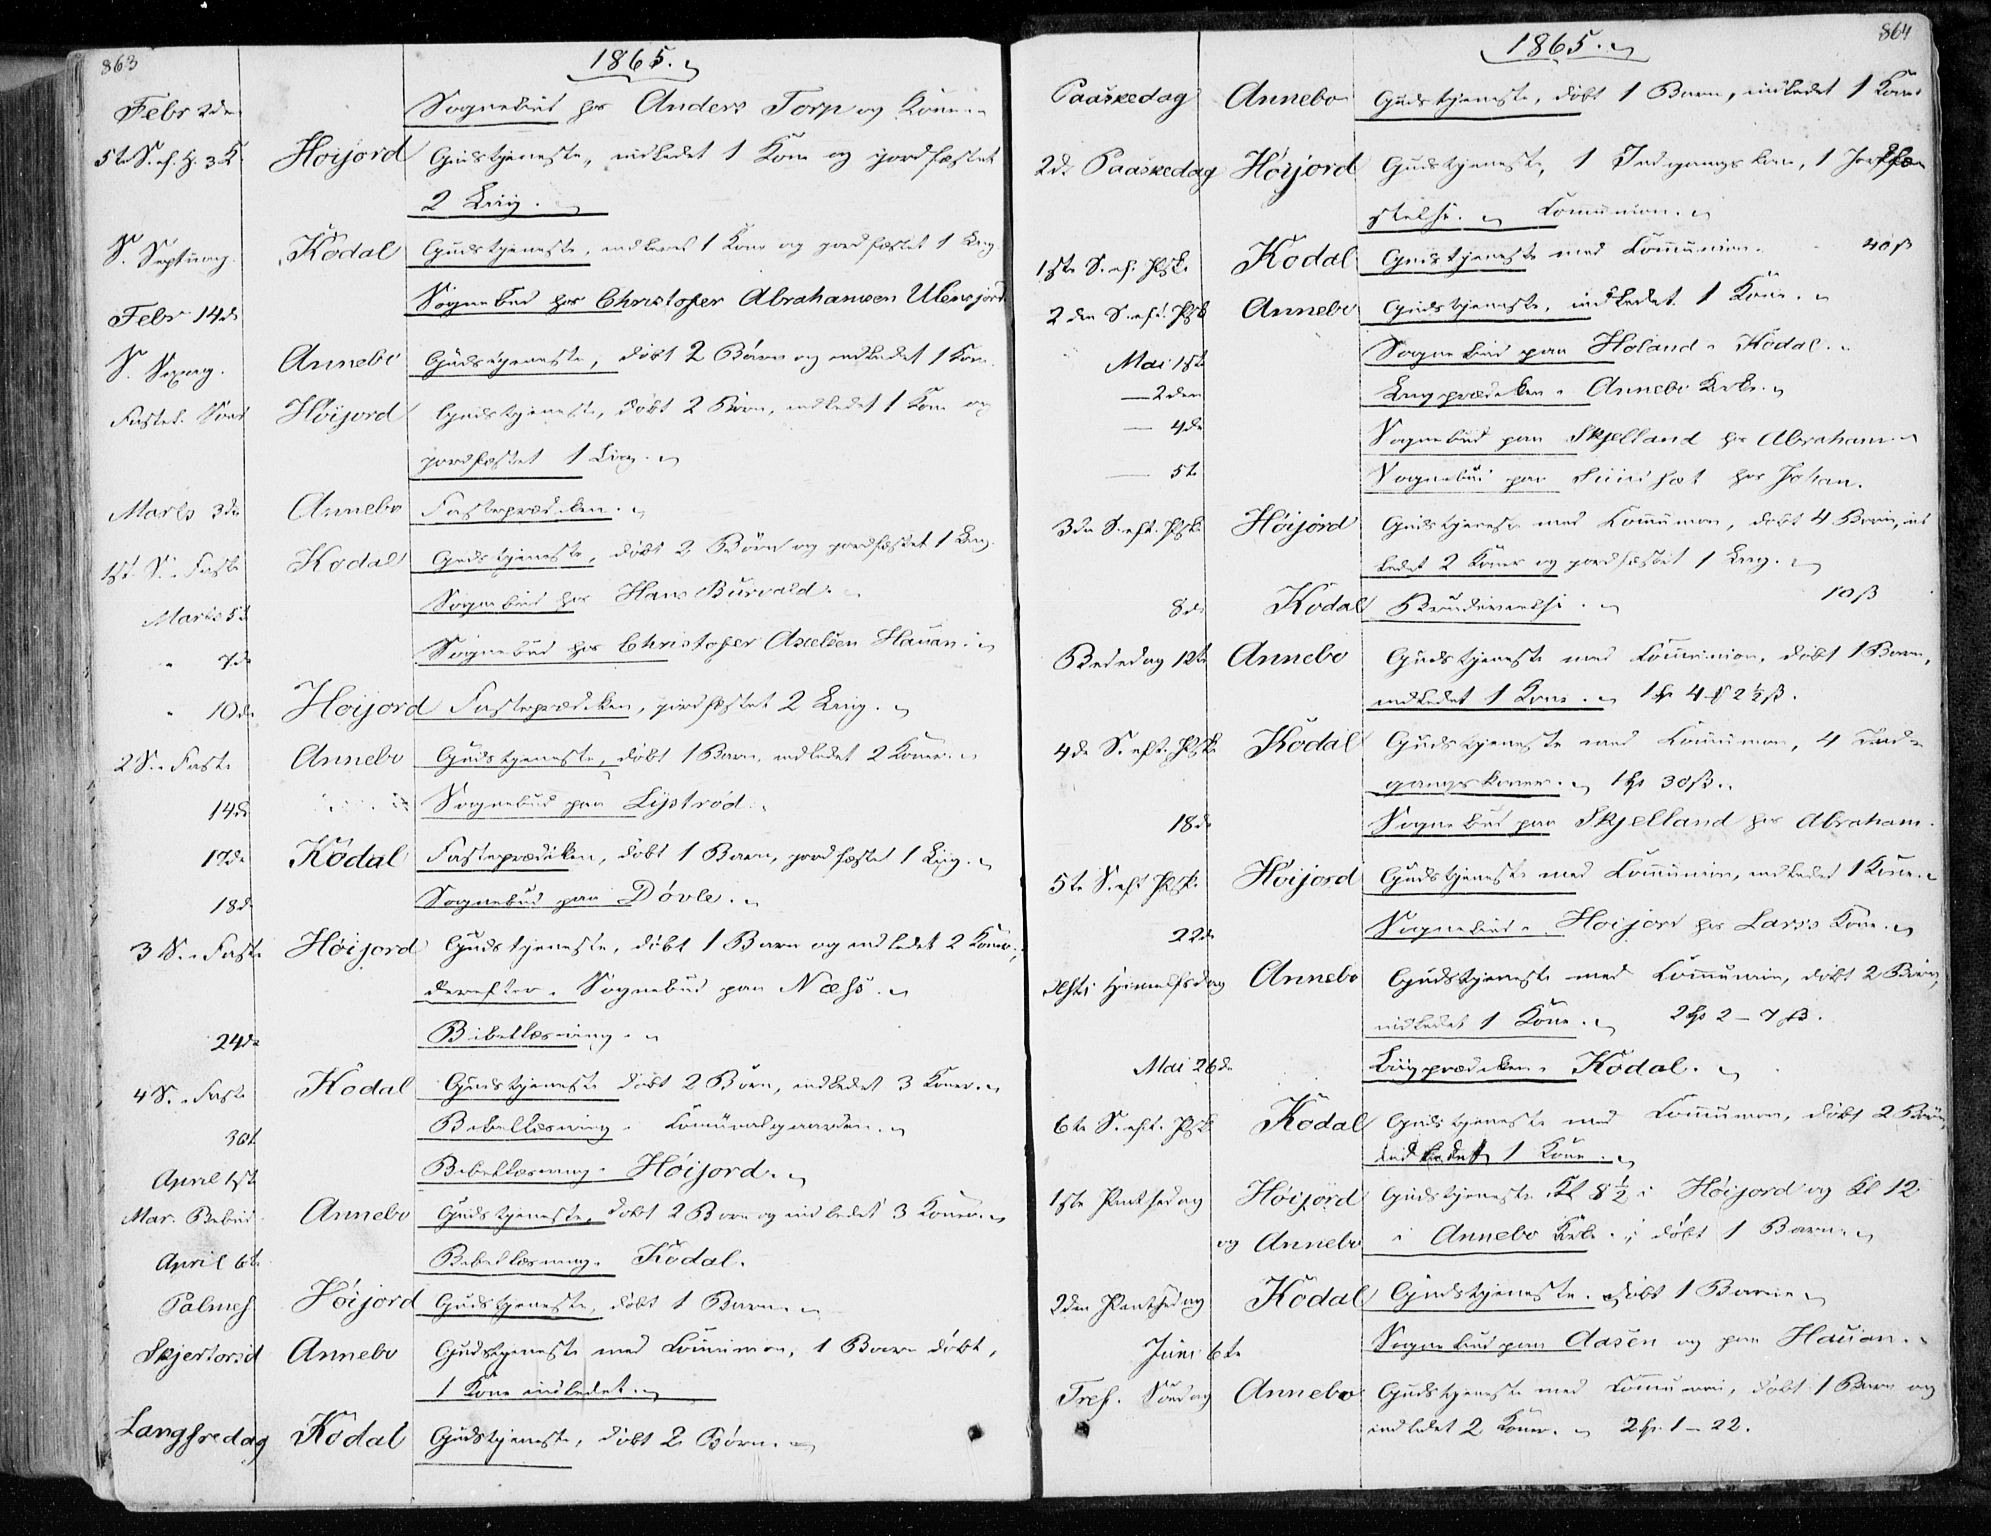 863
1865.
Febr 2den Sognebud hos Anders Torp og Kone.
5te S. ef. H. 3 K. Höijord Gudstjeneste, indledet 1 Kone og jordfæstet
2 Liig.
S. Septuag. Kodal Gudstjeneste, indledet 1 Kone og jordfæstet 1 Liig.
Febr 14de Sognebud hos Christofer Abrahamsen Ulensjord
S. Sexag. Annebo Gudstjeneste, döbt 2 Börn og indledet 1 Kone.
Fastel. Sönd Höijord Gudstjeneste, döbt 2 Börn, indledet 1 Kone og
jordfæstet 1 Liig.
Marts 3de Annebo Fasteprædiken.
1ste S. i Faste Kodal Gudstjeneste, döbt 2 Börn og jordfæstet 1 Liig.
Marts 5te Sognebud hos Hans Burvald.
" 7de Sognebud hos Christofer Axelsen Hauan.
" 10de Höijord Fasteprædiken, jordfæstet 2 Liig.
2 S. i Faste Annebo Gudstjeneste, döbt 1 Barn, indledet 2 Koner.
14de Sognebud paa Lystrod.
17de Kodal Fasteprædiken, döbt 1 Barn, jordfæstet 1 Liig.
18de Sognebud paa Dövle.
3 S. i Faste Höijord Gudstjeneste, döbt 1 Barn og indledet 2 Koner;
derefter i Sognebud paa Næss.
24de Bibellæsning.
4 S. i Faste Kodal Gudstjeneste döbt 2 Börn, indledet 3 Koner.
30te Bibellæsning i Communalgaarden.
April 1ste Bibellæsning i Höijord.
Mar. Bebud. Annebo Gudstjeneste, döbt 2 Börn og indledet 3 Koner.
April 6te Bibellæsning i Kodal.
Palmes Höijord Gudstjeneste, döbt 1 Barn.
Skjertorsd Annebo Gudstjeneste med Communion, 1 Barn döbt,
1 Kone indledet.
Langfredag Kodal Gudstjeneste, döbt 2 Börn.
864
1865.
Paaskedag Annebo Gudstjeneste, döbt 1 Barn, indledet 1 Kone
2de Paaskedag Höijord Gudstjeneste, 1 Indgangskone, 1 Jordfæ
stelse. Communion.
1ste S. ef. Psk. Kodal Gudstjeneste med Communion. 40 ß
2den S. eft. Psk Annebo Gudstjeneste, indledet 1 Kone.
Mai 1ste Sognebud paa Holand i Kodal.
— 2den Liigprædiken i Annebo Kirke.
— 4de Sognebud paa Skjelland hos Abraham.
— 5te Sognebud paa hos Johan.
3de S. eft. Psk. Höijord Gudstjeneste med Communion, döbt 4 Börn, ind
ledet 2 Koner og jordfæstet 1 Liig.
8de Kodal Brudevielse. 10 ß
Bededag 12te Annebo Gudstjeneste med Communion, döbt 1 Barn,
indledet 1 Kone. 1 Sp 4 2½ ß.
4de S. eft. Psk. Kodal Gudstjeneste med Communion, 4 Ind
gangskoner. 1 Sp 30 ß.
18de Sognebud paa Skjelland hos Abraham.
5te S. eft Psk. Höijord Gudstjeneste med Communion, indledet 1 Kone.
22de Sognebud i Höijord hos Lars's Kone.
Chsti Himmelfsdag Annebo Gudstjeneste med Communion, döbt 2 Börn,
indledet 1 Kone. 2 Sp 2 – 7 ß.
Mai 26de Liigprædiken i Kodal.
6te S. eft. Psk Kodal Gudstjeneste med Communion, döbt 2 Börn,
indledet 1 Kone.
1ste Pintsedag Höijord Gudstjeneste Kl 8½ i Höijord og Kl 12
og Annebo i Annebo Kirke; döbt 1 Barn.
2den Pintsedag Kodal Gudstjeneste. döbt 1 Barn
Juni 6te Sognebud paa Aasen og paa Hauan.
Tref. Söndag Annebo Gudstjeneste med Communion, döbt 1 Barn og
indledet 2 Koner. 2 Sp. 1 – 22.